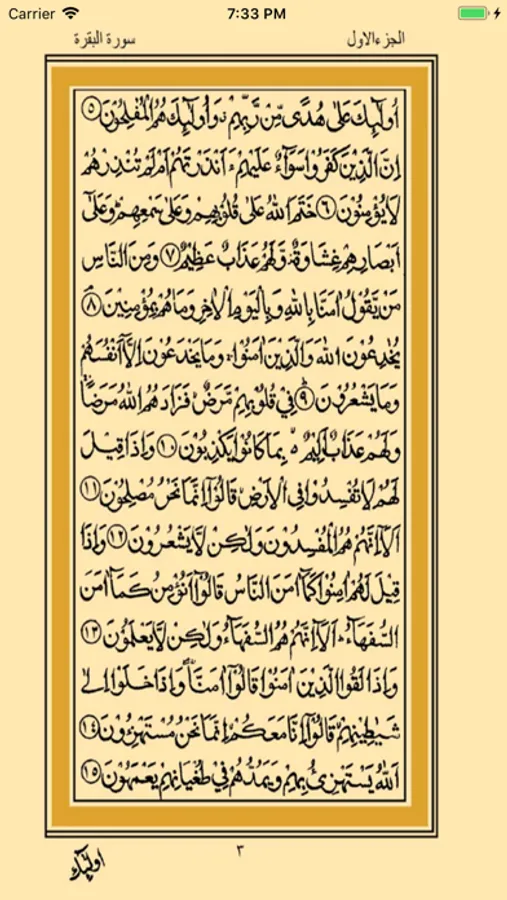 Carrier 7:33 PM
الجزءالاول سورة البقرة
اُولٰٓئِكَ عَلٰى هُدًى مِّنْ رَّبِّهِمْ ۙ وَاُولٰٓئِكَ هُمُ الْمُفْلِحُوْنَ ۝٥
اِنَّ الَّذِيْنَ كَفَرُوْا سَوَآءٌ عَلَيْهِمْ ءَاَنْذَرْتَهُمْ اَمْ لَمْ تُنْذِرْهُمْ
لَا يُؤْمِنُوْنَ ۝٦ خَتَمَ اللّٰهُ عَلٰى قُلُوْبِهِمْ وَعَلٰى سَمْعِهِمْ ؕ وَعَلٰٓى
اَبْصَارِهِمْ غِشَاوَةٌ ؗ وَّلَهُمْ عَذَابٌ عَظِيْمٌ ۝٧ وَمِنَ النَّاسِ
مَنْ يَّقُوْلُ اٰمَنَّا بِاللّٰهِ وَبِالْيَوْمِ الْاٰخِرِ وَمَا هُمْ بِمُؤْمِنِيْنَ ۝٨
يُخٰدِعُوْنَ اللّٰهَ وَالَّذِيْنَ اٰمَنُوْا ۚ وَمَا يَخْدَعُوْنَ اِلَّآ اَنْفُسَهُمْ
وَمَا يَشْعُرُوْنَ ۝٩ فِيْ قُلُوْبِهِمْ مَّرَضٌ ۙ فَزَادَهُمُ اللّٰهُ مَرَضًا ۚ
وَلَهُمْ عَذَابٌ اَلِيْمٌۢ ۙ بِمَا كَانُوْا يَكْذِبُوْنَ ۝١٠ وَاِذَا قِيْلَ
لَهُمْ لَا تُفْسِدُوْا فِي الْاَرْضِ ۙ قَالُوْٓا اِنَّمَا نَحْنُ مُصْلِحُوْنَ ۝١١
اَلَآ اِنَّهُمْ هُمُ الْمُفْسِدُوْنَ وَلٰكِنْ لَّا يَشْعُرُوْنَ ۝١٢ وَاِذَا
قِيْلَ لَهُمْ اٰمِنُوْا كَمَآ اٰمَنَ النَّاسُ قَالُوْٓا اَنُؤْمِنُ كَمَآ اٰمَنَ
السُّفَهَآءُ ؕ اَلَآ اِنَّهُمْ هُمُ السُّفَهَآءُ وَلٰكِنْ لَّا يَعْلَمُوْنَ ۝١٣
وَاِذَا لَقُوا الَّذِيْنَ اٰمَنُوْا قَالُوْٓا اٰمَنَّا ۖۚ وَاِذَا خَلَوْا اِلٰى
شَيٰطِيْنِهِمْ ۙ قَالُوْٓا اِنَّا مَعَكُمْ ۙ اِنَّمَا نَحْنُ مُسْتَهْزِءُوْنَ ۝١٤
اَللّٰهُ يَسْتَهْزِئُ بِهِمْ وَيَمُدُّهُمْ فِيْ طُغْيَانِهِمْ يَعْمَهُوْنَ ۝١٥
٣
اولٰٓئك